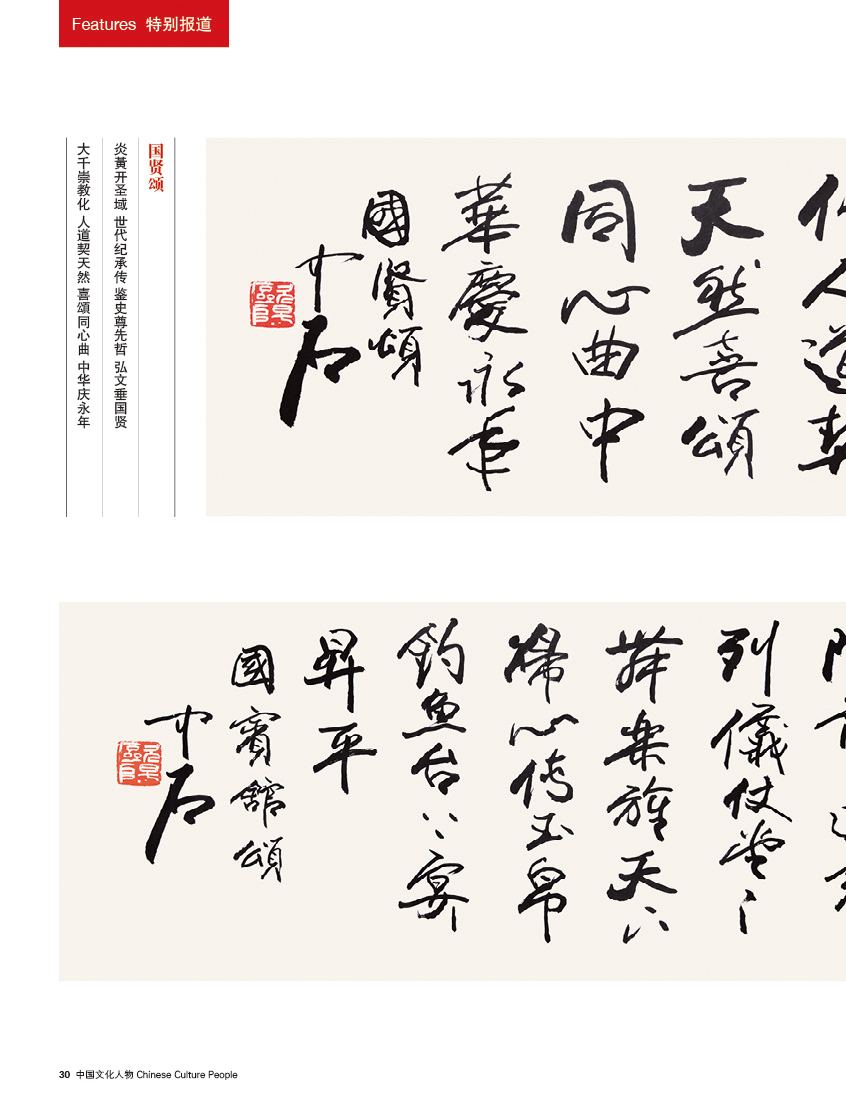 Features 特别报道
国贤颂
炎黃开圣域 世代纪承传 鉴史尊先哲 弘文垂国贤
大千崇教化 人道契天然 喜頌同心曲 中华庆永年
人道契
天然喜頌
同心曲中
華慶永年
國賢頌
中石
列儀仗堂〻
舞樂 天〻
歸心傳玉帛
釣魚台〻宴
昇平
國賓館頌
中石
30 中国文化人物 Chinese Culture People